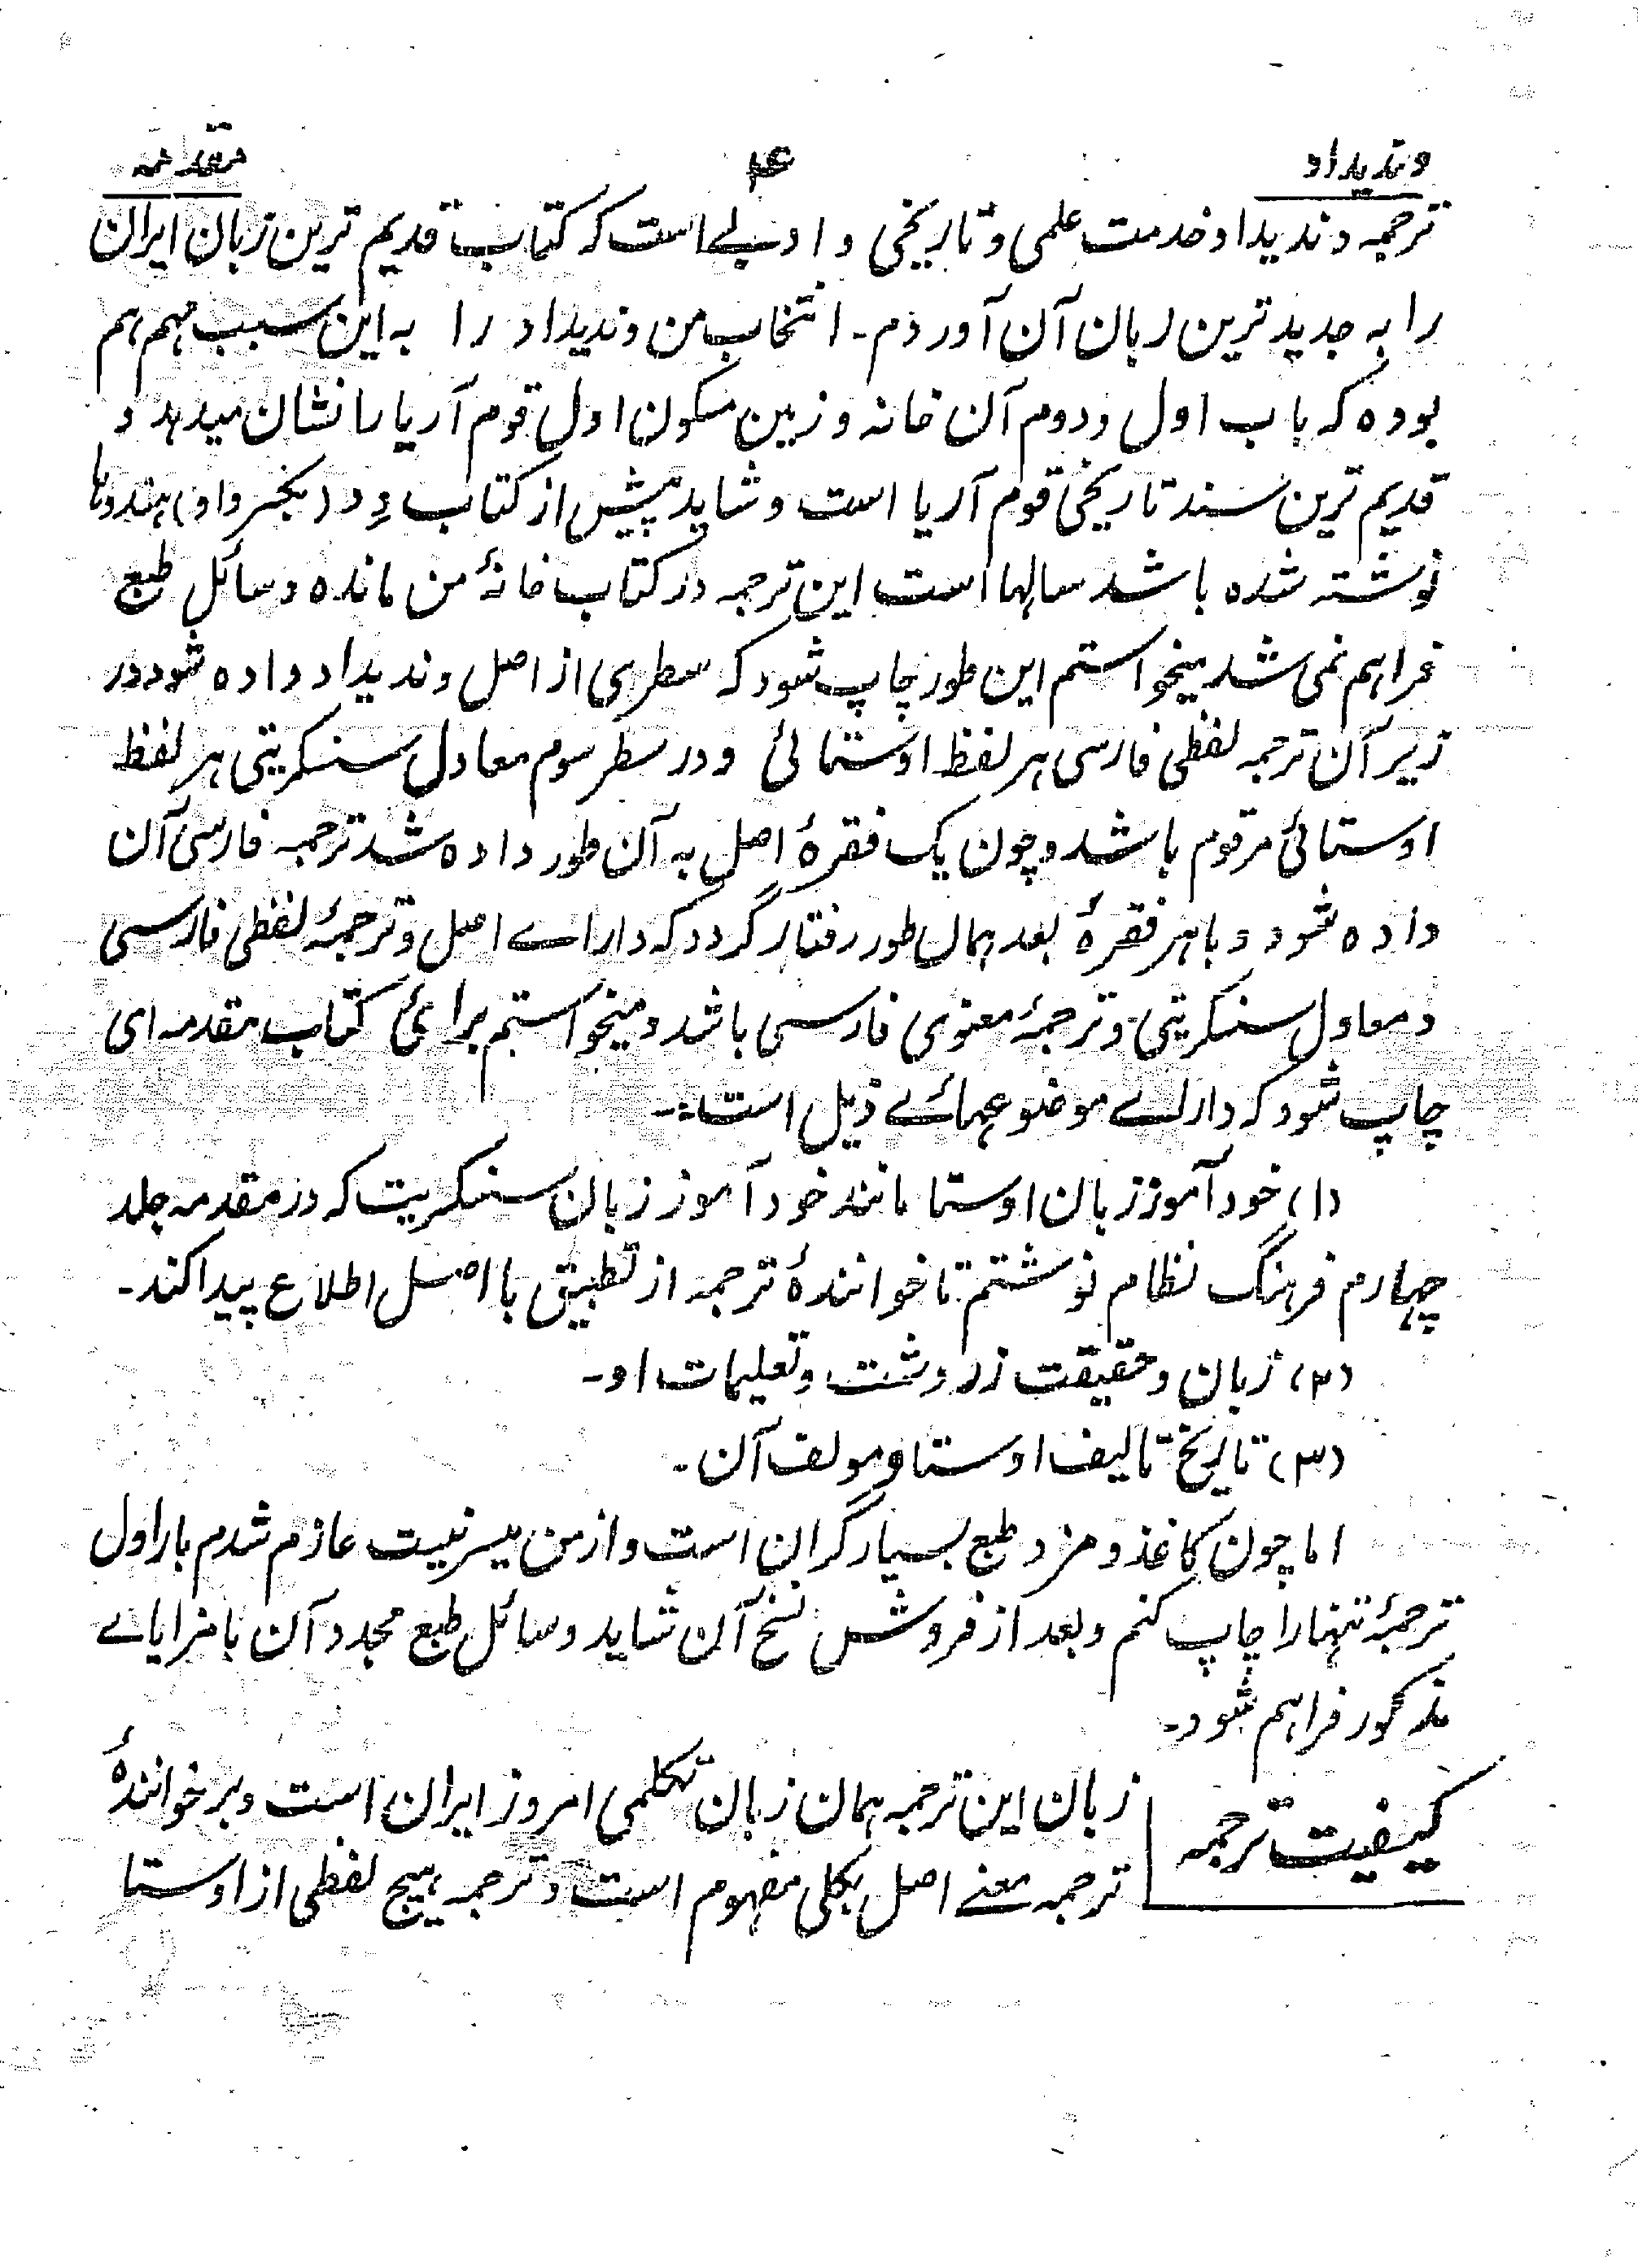 وندیداد ۴ مقدمه
ترجمه وندیداد خدمت علمی و تاریخی و ادبی است که کتاب قدیم ترین زبان ایران
را به جدید ترین زبان آن آوردم۔ انتخاب من وندیداد را به این سبب مهم هم
بوده که باب اول و دوم آن خانه و زمین مسکون اول قوم آریا را نشان میدهد و
قدیم ترین سند تاریخی قوم آریا است و شاید پیش از کتاب وِد (بکسر واو) هندوها
نوشته شده باشد سالها است این ترجمه در کتاب خانهٔ من مانده وسائل طبع
فراهم نمی شد میخواستم این طور چاپ شود که سطری از اصل وندیداد داده شود در
زیر آن ترجمه لفظی فارسی هر لفظ اوستائی و در سطر سوم معادل سنسکریتی هر لفظ
اوستائی مرقوم باشد و چون یک فقرهٔ اصل به آن طور داده شد ترجمه فارسی آن
داده شود و با هر فقرهٔ بعد همان طور رفتار گردد که دارای اصل و ترجمهٔ لفظی فارسی
و معادل سنسکریتی و ترجمهٔ معنوی فارسی باشد و میخواستم برای کتاب مقدمه ای
چاپ شود که دارای موضوعهائے ذیل است:۔
(۱) خود آموز زبان اوستا مانند خود آموز زبان سنسکریت که در مقدمه جلد
چهارم فرهنگ نظام نوشتم تا خوانندهٔ ترجمه از تطبیق با اصل اطلاع پیدا کند۔
(۲) زبان و حقیقت زردوشت و تعلیمات او۔
(۳) تاریخ تالیف اوستا و مولف آن۔
اما چون کاغذ و مزد طبع بسیار گران است و از من میسر نیست عازم شدم بار اول
ترجمهٔ تنها را چاپ کنم و بعد از فروش نسخ آن شاید وسائل طبع مجدد آن با مزایاے
مذکور فراهم شود۔
کیفیت ترجمه
زبان این ترجمه همان زبان تکلمی امروز ایران است و بر خوانندهٔ
ترجمه معنے اصل بکلی مفهوم است و ترجمه هیچ لفظی از اوستا